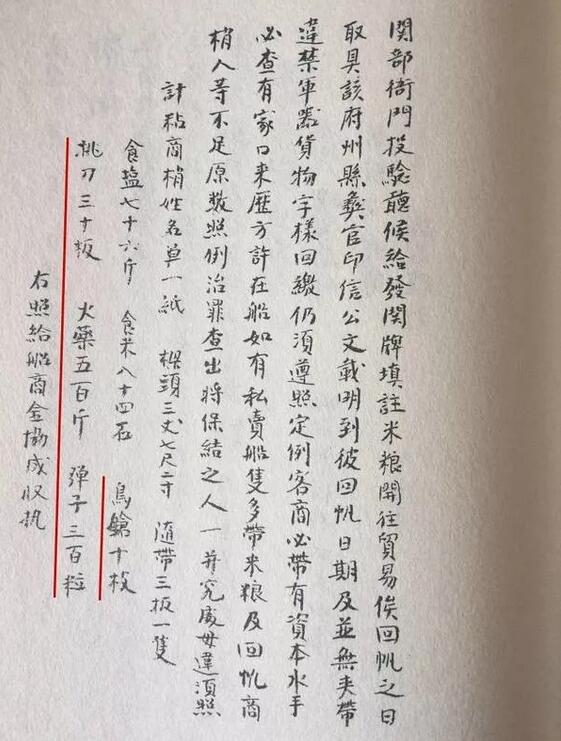 関部衙門投驗聽候給發関牌填註米粮開往貿易俟回帆之日
取具該府州縣彝官印信公文載明到彼回帆日期及並無夹帶
違禁軍噐貨物字樣回繳仍須遵照定例客商必帶有資本水手
必查有家口来歷方許在船如有私賣船隻多帶米粮及回帆商
梢人等不足原数照例治罪查出將保結之人一并究處毋違須照
計粘商梢姓名单一紙 樑頭三丈七尺二寸 随帶三板一隻
食塩七十六斤 食米八十四石 鳥鎗十枝
桃刀三十板 火藥五百斤 弹子三百粒
右照給船商金協成収执